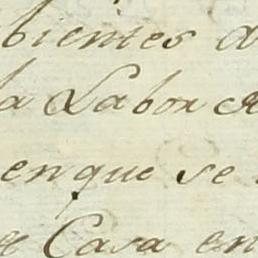 bientes a
la Labor de
enque se
de Casa en